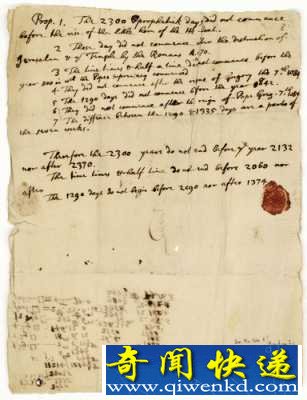 Prop. 1. The 2300 prophetick days did not commence
before the rise of the little horn of the He Goat.
2 Those day did not commence after the destruction of
Jerusalem & ye Temple by the Romans A. 70.
3 The time times & half a time did not commence before the
year 800 in wch the Popes supremacy commenced
4 They did not commence after the reign of Gregory the 7th. 1084
5 The 1290 days did not commence before the year 842.
6 They did not commence after the reign of Pope Greg. 7th. 1084
7 The difference between the 1290 & 1335 days are a parts of
the seven weeks.
Therfore the 2300 years do not end before ye year 2132
nor after 2370.
The time times & half time do not end before 2060 nor
after
The 1290 days do not begin before 2090 nor after 1374
奇闻快递
www.qiwenkd.com